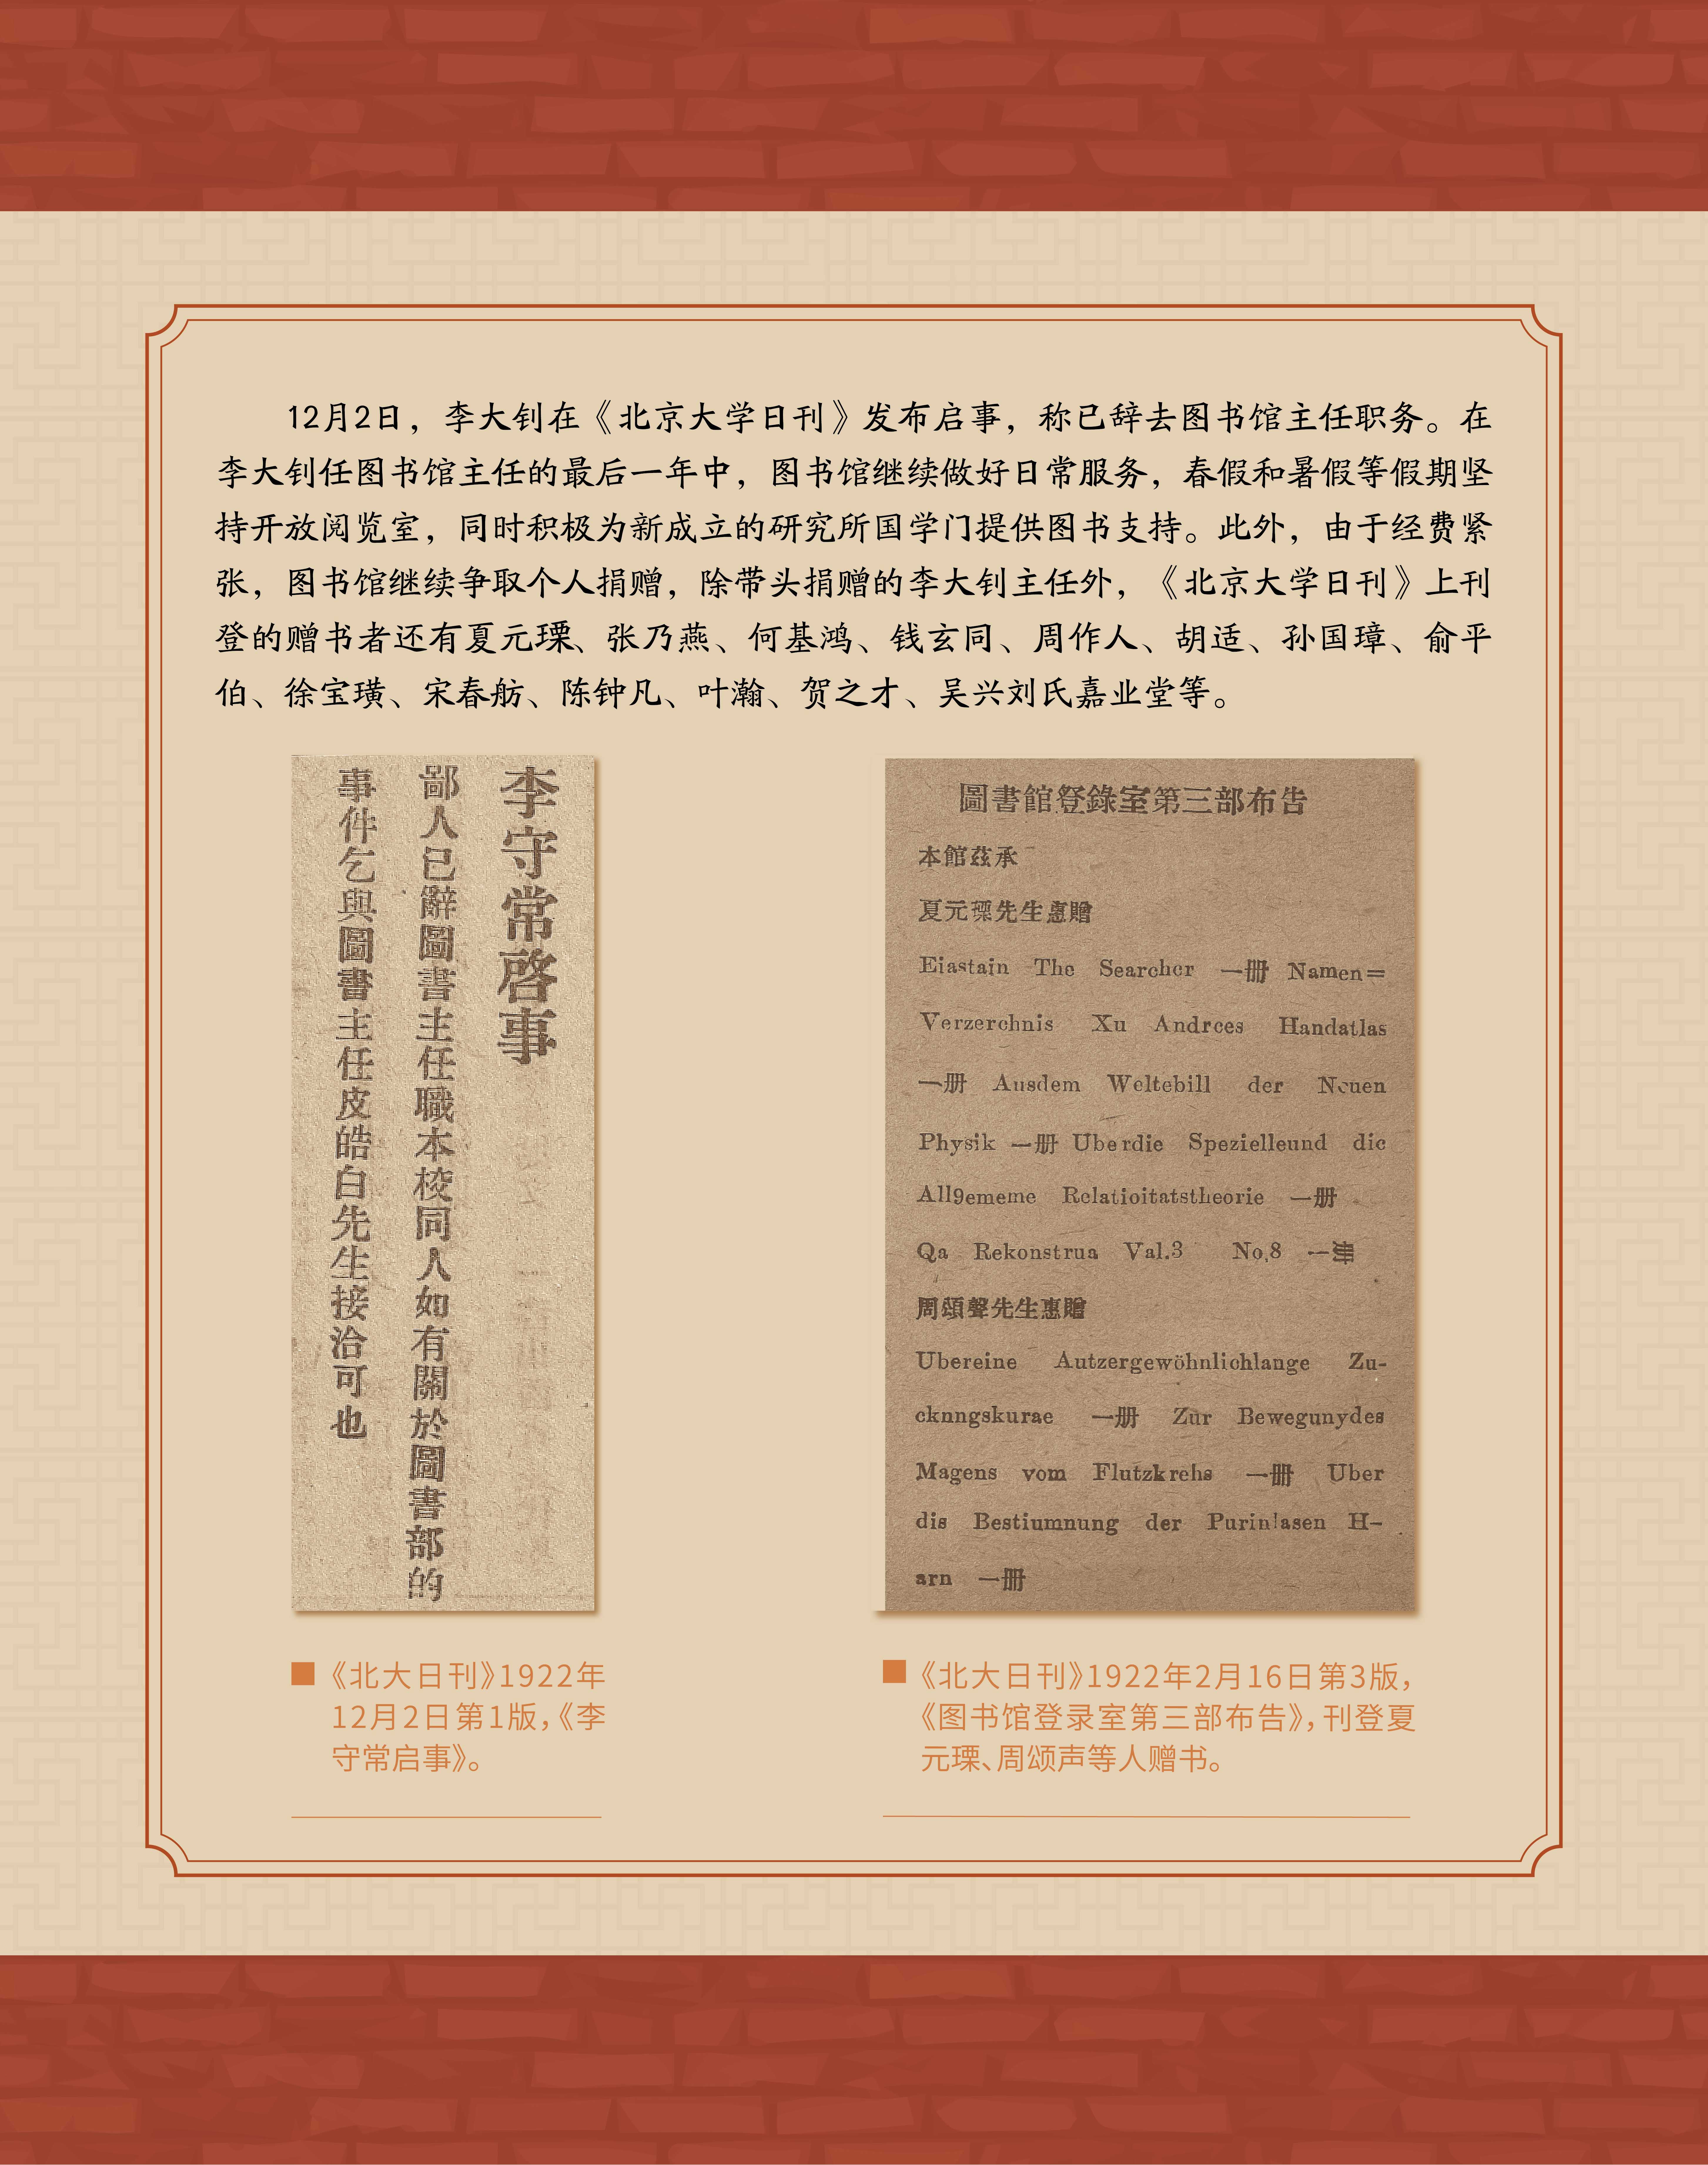 12月2日，李大钊在《北京大学日刊》发布启事，称已辞去图书馆主任职务。在
李大钊任图书馆主任的最后一年中，图书馆继续做好日常服务，春假和暑假等假期坚
持开放阅览室，同时积极为新成立的研究所国学门提供图书支持。此外，由于经费紧
张，图书馆继续争取个人捐赠，除带头捐赠的李大钊主任外，《北京大学日刊》上刊
登的赠书者还有夏元瑮、张乃燕、何基鸿、钱玄同、周作人、胡适、孙国璋、俞平
伯、徐宝璜、宋春舫、陈钟凡、叶瀚、贺之才、吴兴刘氏嘉业堂等。
李守常啓事
鄙人已辭圖書主任職本校同人如有關於圖書部的
事件乞與圖書主任皮皓白先生接洽可也
圖書館登錄室第三部布告
本館茲承
夏元瑮先生惠贈
Eiastain The Searcher 一冊 Namen=
Verzerchnis Xu Andrces Handatlas
一冊 Ausdem Weltebill der Neuen
Physik 一冊 Uberdie Spezielleund die
All9ememe Relatioitatstheorie 一冊
Qa Rekonstrua Val.3 No.8 一冊
周頌聲先生惠贈
Ubereine Autzergewöhnlichlange Zu-
cknngskurae 一冊 Zur Bewegunydes
Magens vom Flutzkrehs 一冊 Uber
dis Bestiumnung der Purinlasen H-
arn 一冊
《北大日刊》1922年
12月2日第1版，《李
守常启事》。
《北大日刊》1922年2月16日第3版，
《图书馆登录室第三部布告》，刊登夏
元瑮、周颂声等人赠书。